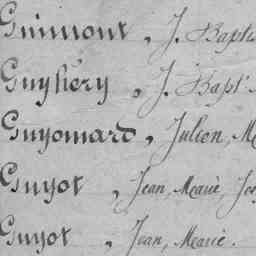 Guimont, J. Bapti
Guyhéry, J. Bapt.
Guyomard, Julien, M
Guyot, Jean, Marie, Jos
Guyot, Jean, Marie.